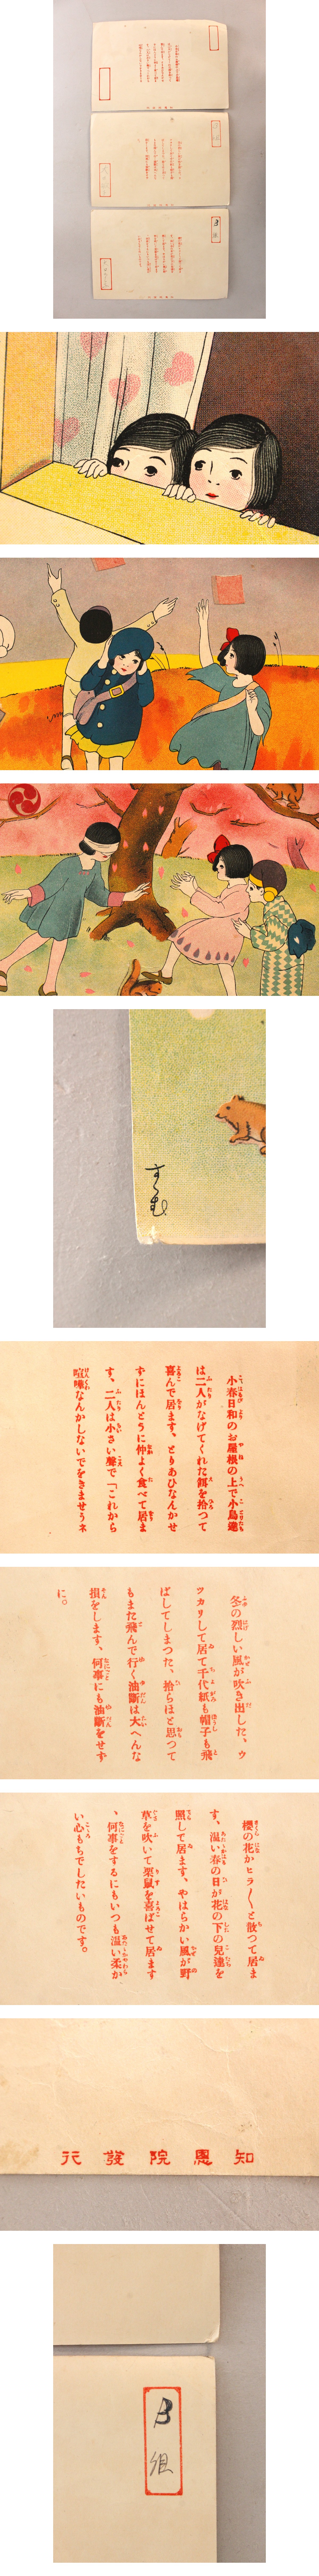 すゝむ
小春日和のお屋根の上で小鳥達
は二人がなげてくれた餌を拾つて
喜んで居ます、とりあひなんかせ
ずにほんとうに仲よく食べて居ま
す、二人は小さい聲で「これから
喧嘩なんかしないでをきませうネ
冬の烈しい風が吹き出した、ウ
ツカリして居て千代紙も帽子も飛
ばしてしまつた、拾らほと思つて
もまた飛んで行く油斷は大へんな
損をします、何事にも油斷をせず
に。
櫻の花かヒラ〳〵と散つて居ま
す、温い春の日が花の下の兒達を
照して居ます、やはらかい風が野
草を吹いて栗鼠を喜ばせて居ます
、何事をするにもいつも温い柔か
い心もちでしたいものです。
知恩院發行
3
組